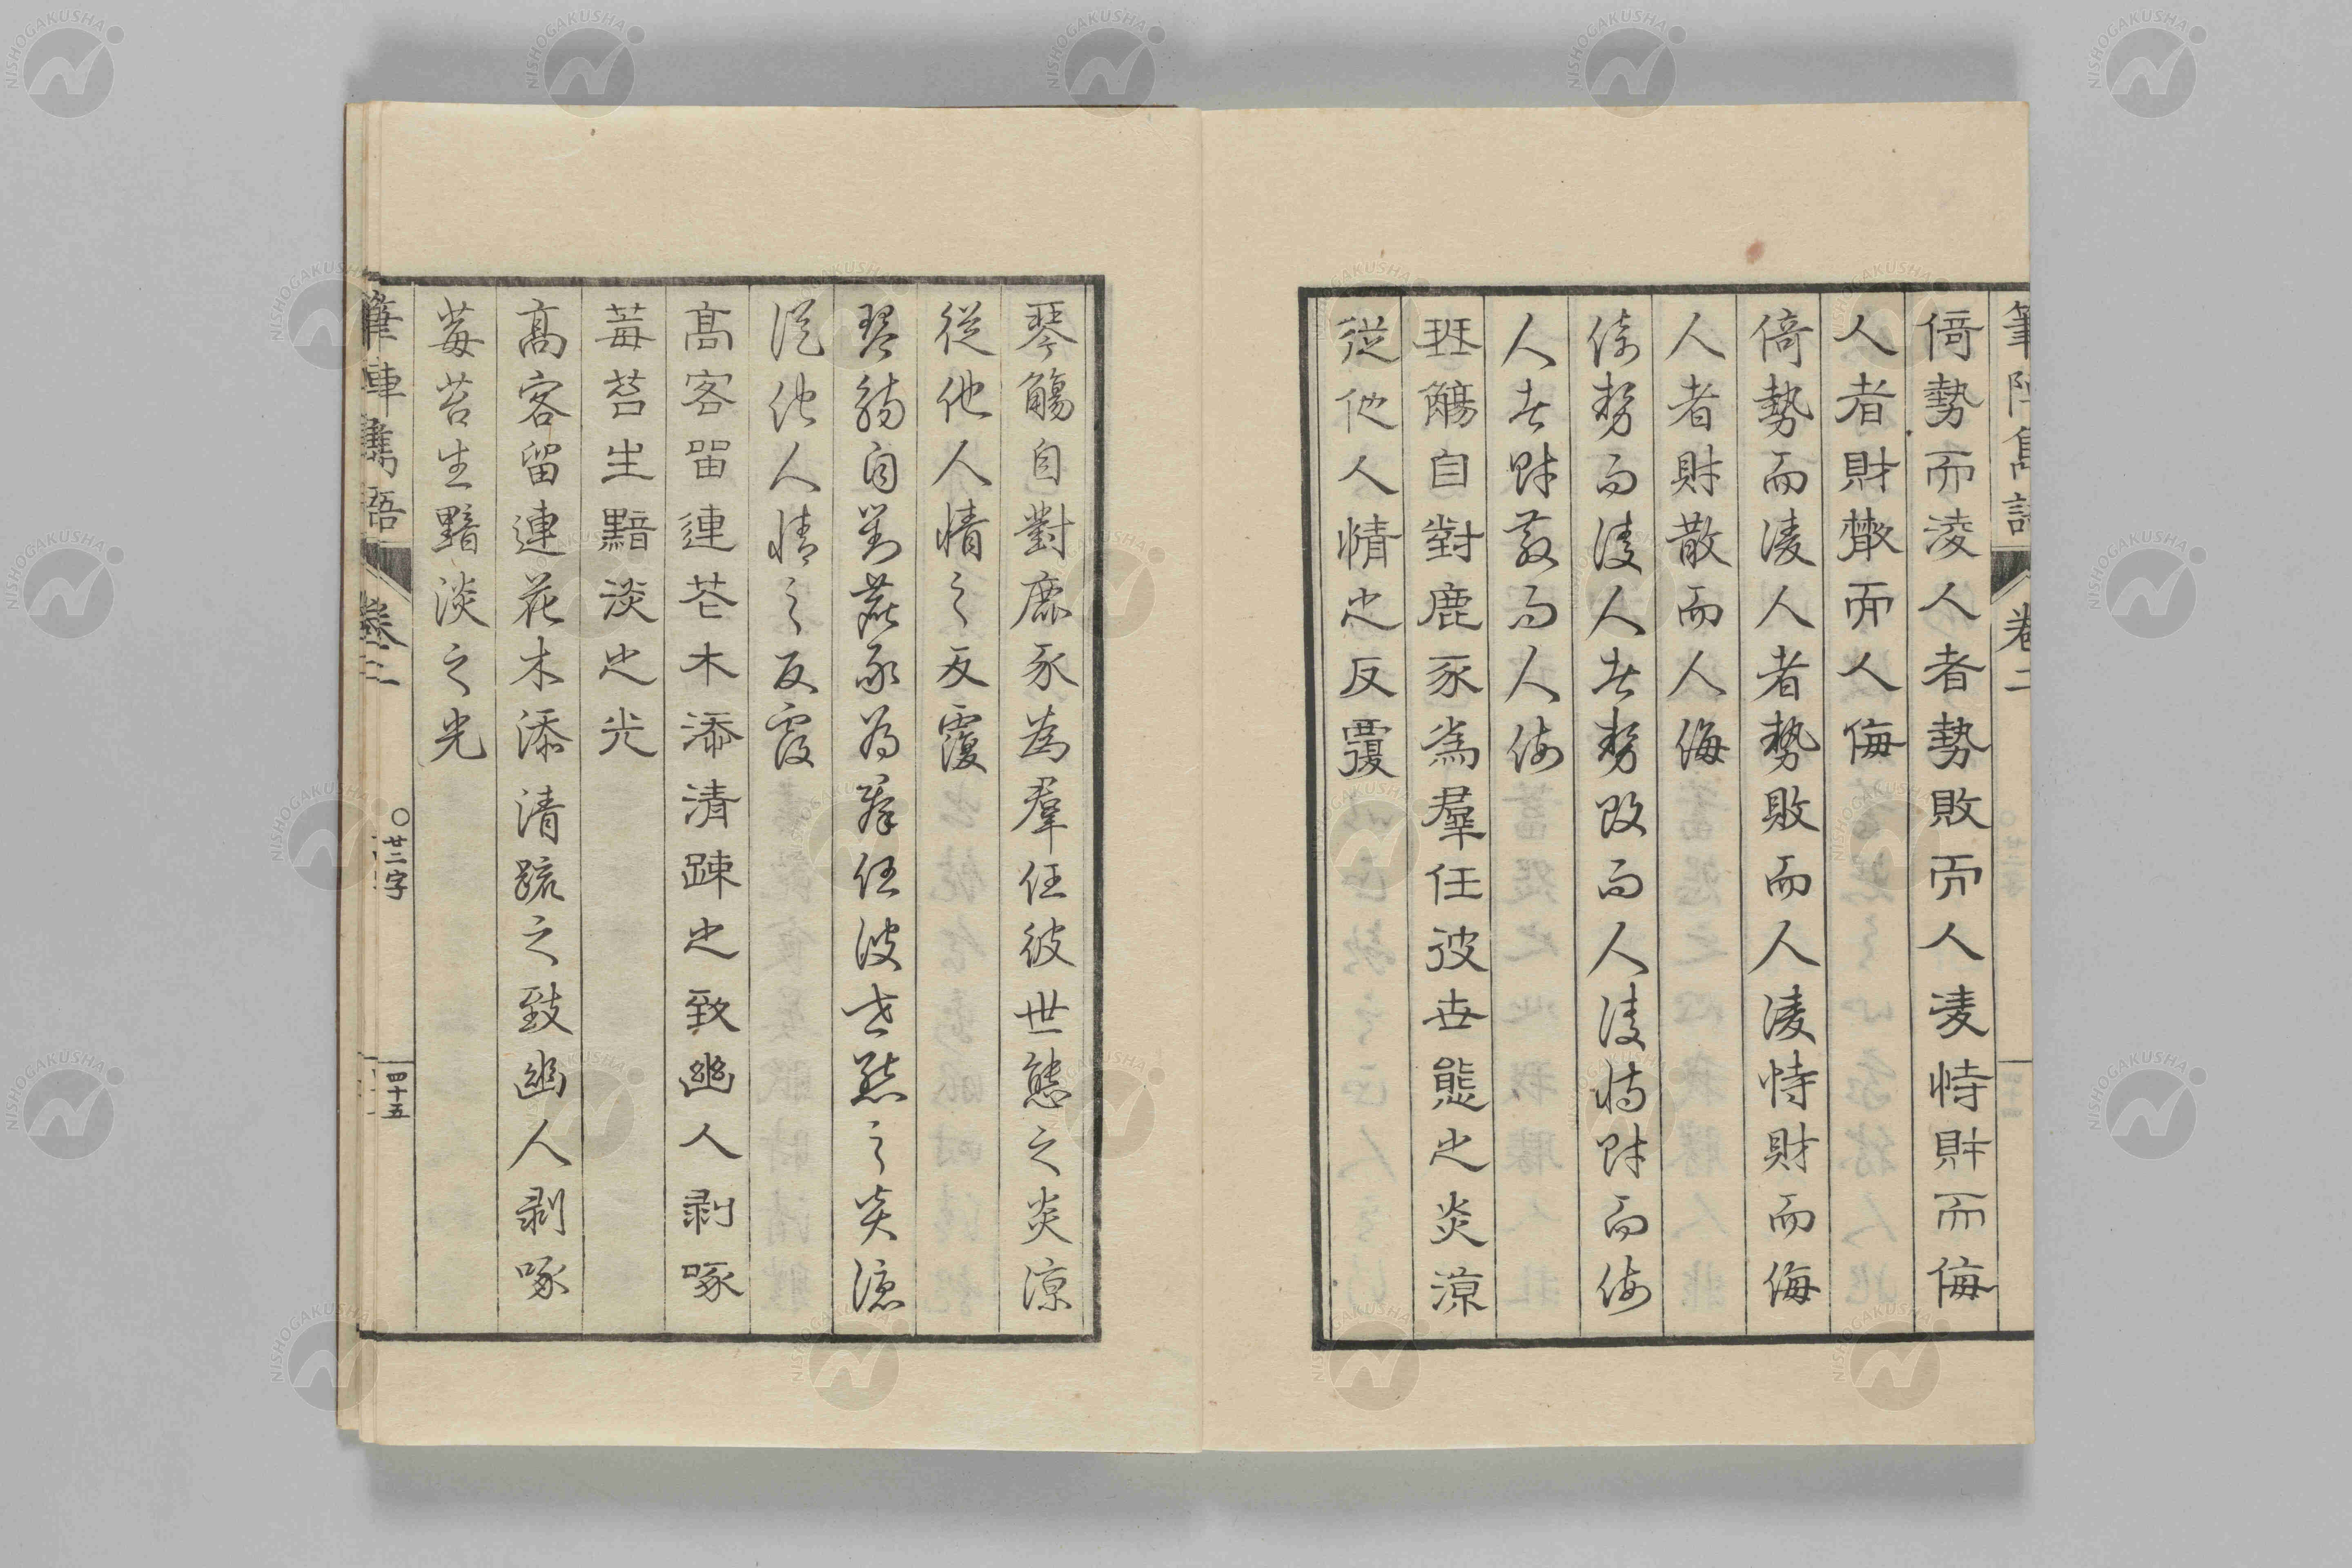 筆陣雋語 卷二
倚勢而淩人者勢敗而人凌恃財而侮
人者財散而人侮
倚勢而凌人者勢敗而人凌恃財而侮
人者財散而人侮
倚勢而凌人者勢敗而人凌恃財而侮
人者財散而人侮
琴觴自對鹿豕為羣任彼世態之炎涼
從他人情之反覆
琴觴自對鹿豕為羣任彼世態之炎涼
從他人情之反覆
琴觴自對鹿豕為羣任彼世態之炎涼
從他人情之反覆
高客留連花木添清疎之致幽人剥啄
莓苔生黯淡之光
高客留連花木添清疏之致幽人剥啄
莓苔生黯淡之光
筆陣雋語 卷二 〇廿二字 四十五
NISHOGAKUSHA